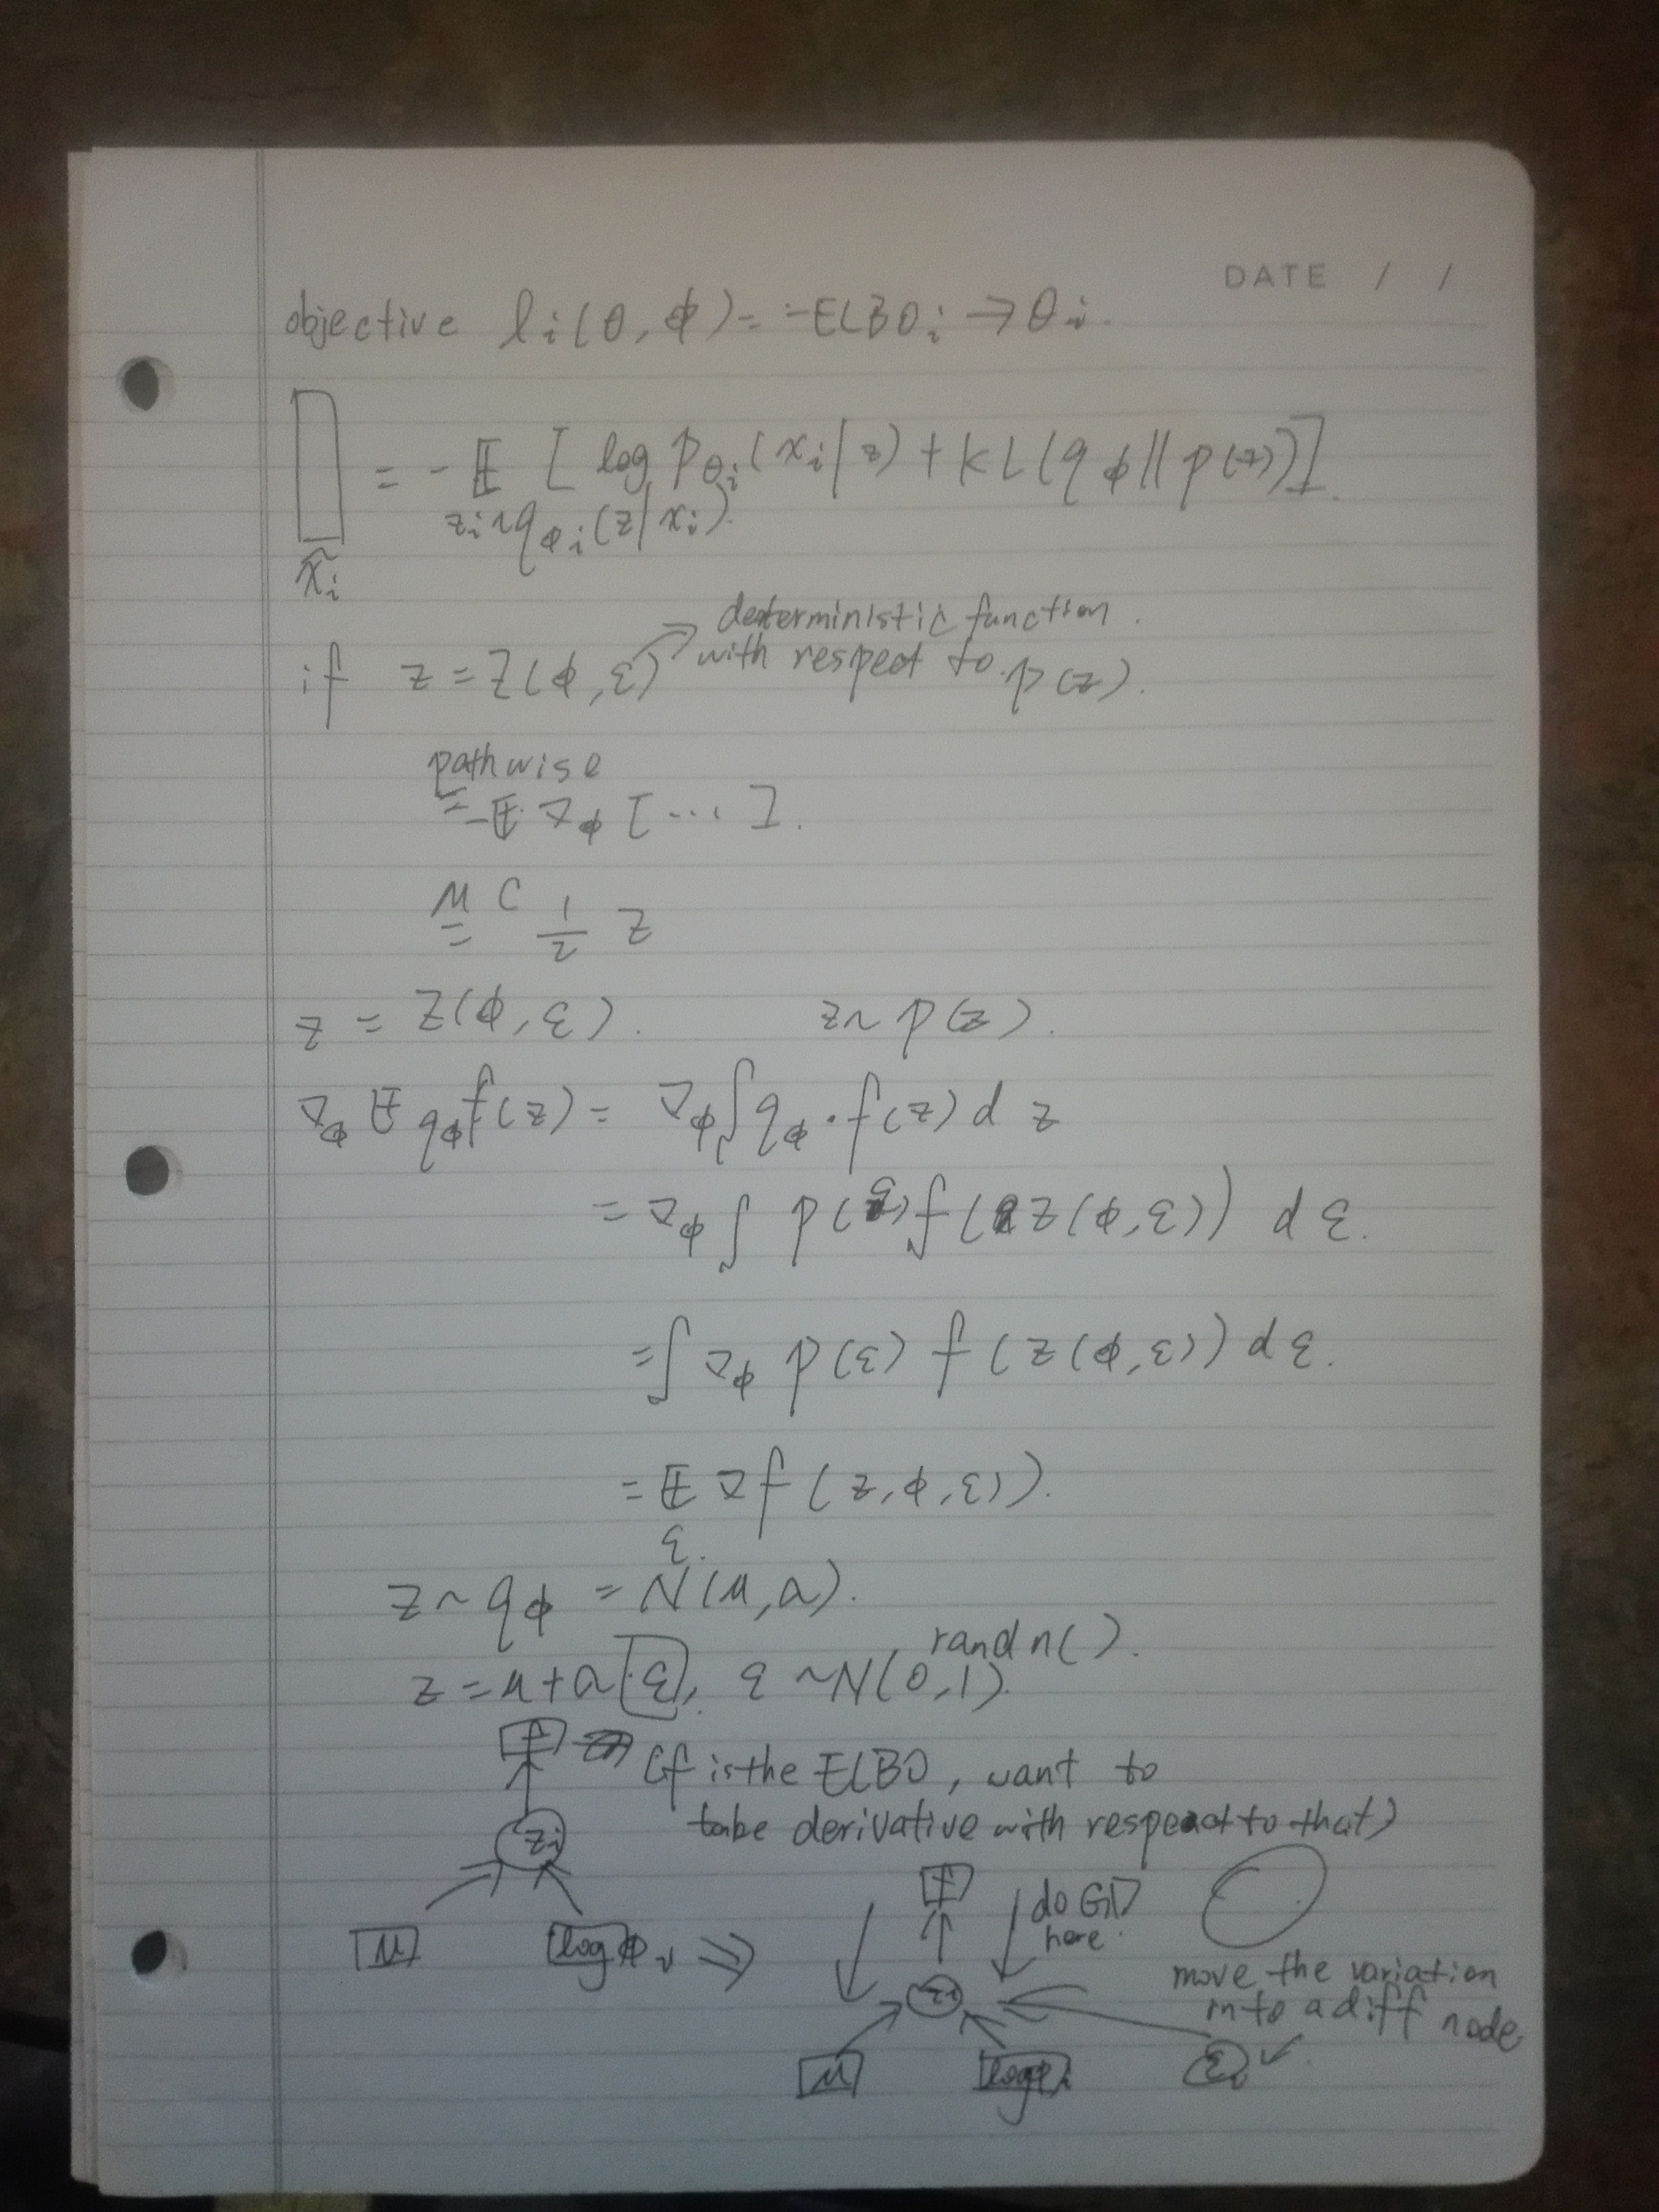 DATE / /
objective l_i(θ, ϕ) = -ELBO_i → θ_i.
= - 𝔼 [ log p_θi (x_i | z) + KL(q_ϕ || p(z)) ].
z_i ~ q_ϕi (z | x_i).
x̃_i
deterministic function.
if z = Z(ϕ, ε) → with respect to p(z).
pathwise
= -𝔼 ∇_ϕ [ ... ].
MC
= 1/2 Z
z = Z(ϕ, ε). z ~ p(z).
∇_ϕ 𝔼 q_ϕ f(z) = ∇_ϕ ∫ q_ϕ · f(z) d z
= ∇_ϕ ∫ p(ε) f(Z(ϕ, ε)) d ε.
= ∫ ∇_ϕ p(ε) f(z(ϕ, ε)) d ε.
= 𝔼 ∇ f(z, ϕ, ε)).
ε.
z ~ q_ϕ = N(μ, a).
randn().
z = μ + a ε, ε ~ N(0, 1).
f (f is the ELBO, want to
z_i take derivative with respect to that)
f do GD
here.
μ ⇒
z_i move the variation
into a diff node
μ ε_i